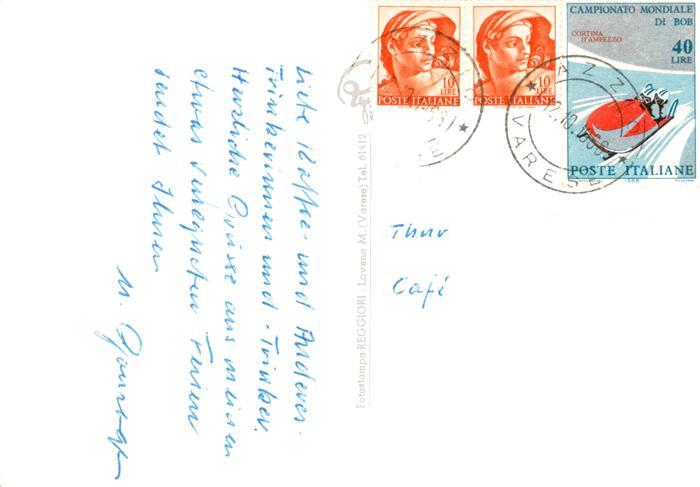 Liebe Kaffe- und Anderes-
Trinkerinnen und -Trinker.
Herzliche Grüsse aus meinen
etwas verlegten Ferien
sendet Ihnen
Thur
Café
Fotostampa REGGIORI - Laveno M. (Varese) Tel. 61412
10
LIRE
POSTE ITALIANE
10
LIRE
POSTE ITALIANE
CAMPIONATO MONDIALE
DI BOB
CORTINA
D'AMPEZZO
40
LIRE
POSTE ITALIANE
1966
VARESE